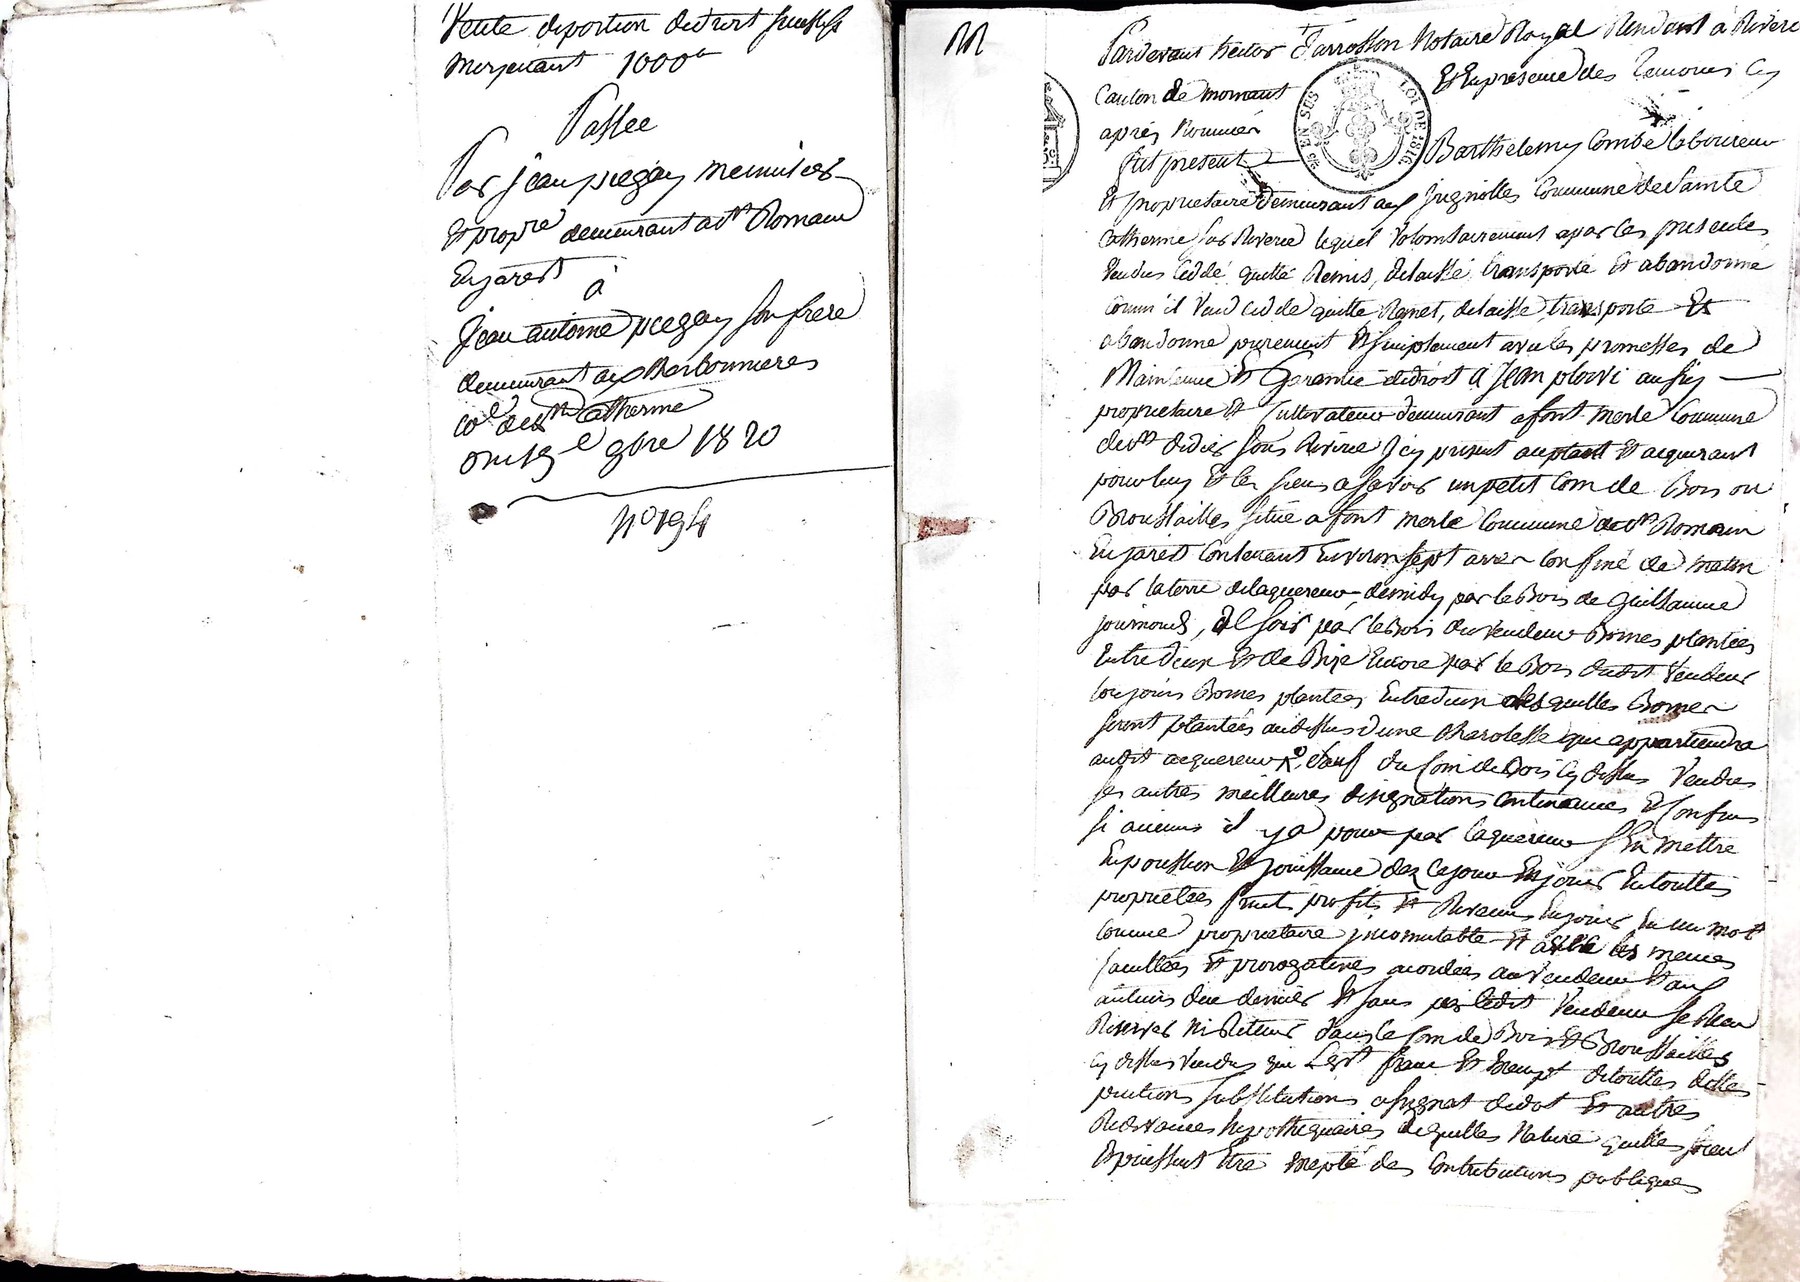 Vente de portion de droit successif
moyenant 1000
Passée
Par jean pregay menuisier
et propre demeurant a st Romain
En jarest
à
Jean antoine pregay son frere
demeurant aux Barbonnieres
coe de ste Catherine
onise 9bre 1820
No 194
Pardevant hector Jarrosson Notaire Royal Résidant à Riverie
Canton de mornant Et En presence des temoins Cy
EN SUS LOI DE 1816
après Nommés
fut present Barthelemy Combe laboureur
Et proprietaire demeurant aux jugnottes Commune de Sainte
Catherine sur Riverie lequel Volontairement a par les presentes
Vendus Ceddé quitté Remis, delaissé transporté Et abandonné
Comm'il Vend Cedde quitte Remet, delaisse transporte Et
abandonne purement Et simplement avec les promesses de
Maintenue Et Garantie de droit a Jean plovi aussy
proprietaire Et Cultivateur demeurant a font merle Commune
de st didier sous Riverie Icy present acceptant Et acquerant
pour luy Et les siens a savoir un petit Coin de Bois ou
Broussailles situé a font merle Commune de st Romain
En jarest Contenant Environ sept ares Confiné de matin
par la terre de laquereur, de midy par le Bois de Guillaume
joumond, de soir par le Bois du Vendeur Bornes plantées
Entre deux Et de Bize Encore par le Bois dudit Vendeur
toujours Bornes plantées Entre deux desquelles Bornes
seront plantées au dessus d'une Charolesse qui appartiendra
audit acquereur, sauf du Coin de Bois Cy dessus Vendus
ses autres meilleures designations Contenances Et Confins
si aucuns il y a pour par laquereur s'En mettre
En possession Et jouissance dez Ce jour En jouir En toutte
proprietées fruits profits Et Revenus En jouir En un mot
Comme proprietaire incomutable Et avec les memes
facultées Et prerogatives acordées au Vendeur Et aux
auteurs du dernier Et sans par ledit Vendeur se Rien
Reserver ni Retenir dans le Coin de Bois Et Broussailles
Cy dessus Vendus qui Est franc Et Exempt de touttes dettes
pentions substitutions assignat de dot Et autres
Redevances hypothequaires de quelles Nature quelles soient
Et puissent Etre Exepté des Contributions publiques